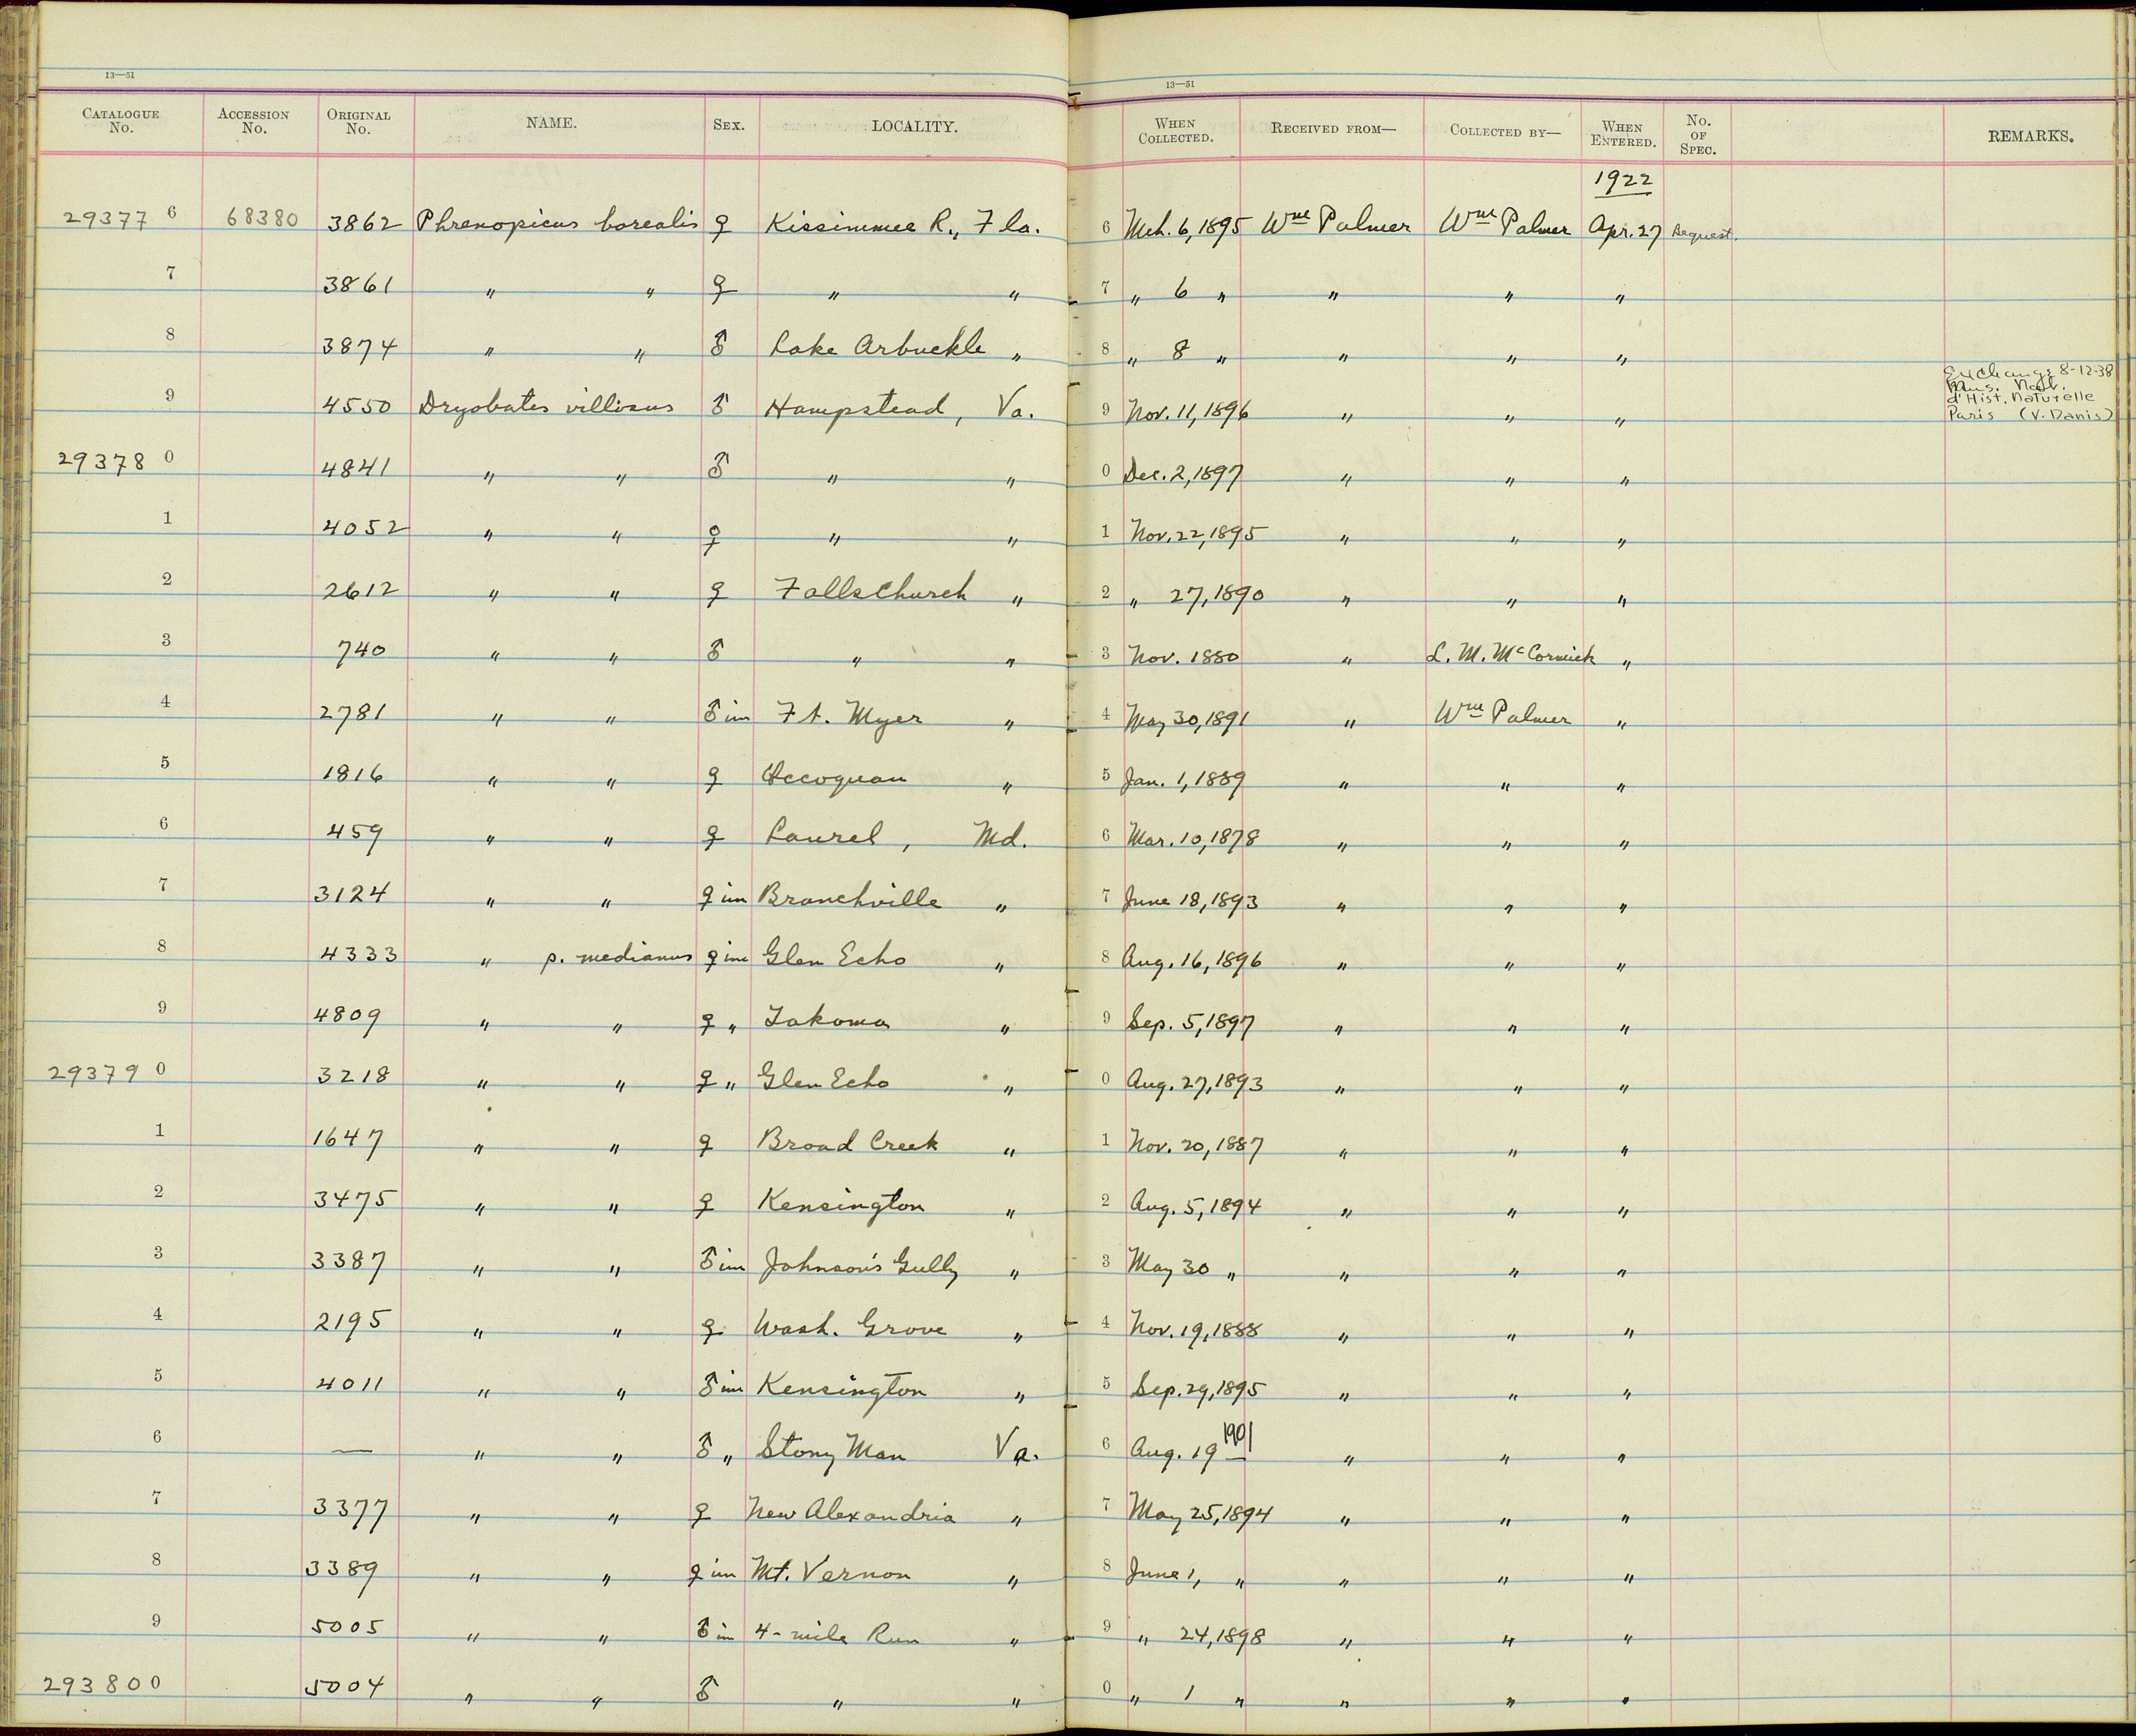 13—51
13—51
CATALOGUE No. ACCESSION No. ORIGINAL No. NAME. SEX. LOCALITY. WHEN COLLECTED. RECEIVED FROM— COLLECTED BY— WHEN ENTERED. No. OF SPEC. REMARKS.
1922
29377 6 68380 3862 Phrenopicus borealis ♀ Kissimmee R., Fla. 6 Mch. 6, 1895 Wm Palmer Wm Palmer Apr. 27 Bequest.
7 3861 " " ♀ " " 7 " 6 " " " "
8 3874 " " ♂ Lake Arbuckle " 8 " 8 " " " "
Exchange 8-12-38
Mus. Natl.
d'Hist. Naturelle
Paris (V. Danis)
9 4550 Dryobates villosus ♂ Hampstead, Va. 9 Nov. 11, 1896 " " "
29378 0 4841 " " ♂ " " 0 Dec. 2, 1897 " " "
1 4052 " " ♀ " " 1 Nov. 22, 1895 " " "
2 2612 " " ♀ Falls Church " 2 " 27, 1890 " " "
3 740 " " ♂ " " 3 Nov. 1880 " L. M. McCormick "
4 2781 " " ♂ im Ft. Myer " 4 May 30, 1891 " Wm Palmer "
5 1816 " " ♀ Occoquan " 5 Jan. 1, 1889 " " "
6 459 " " ♀ Laurel, Md. 6 Mar. 10, 1878 " " "
7 3124 " " ♀ im Branchville " 7 June 18, 1893 " " "
8 4333 " p. medianus ♀ im Glen Echo " 8 Aug. 16, 1896 " " "
9 4809 " " ♀ " Takoma " 9 Sep. 5, 1897 " " "
29379 0 3218 " " ♀ " Glen Echo " 0 Aug. 27, 1893 " " "
1 1647 " " ♀ Broad Creek " 1 Nov. 20, 1887 " " "
2 3475 " " ♀ Kensington " 2 Aug. 5, 1894 " " "
3 3387 " " ♂ im Johnson's Gully " 3 May 30 " " " "
4 2195 " " ♀ Wash. Grove " 4 Nov. 19, 1888 " " "
5 4011 " " ♂ im Kensington " 5 Sep. 29, 1895 " " "
6 — " " ♂ " Stony Man Va. 6 Aug. 19 1901 " " "
7 3377 " " ♀ New Alexandria " 7 May 25, 1894 " " "
8 3389 " " ♀ im Mt. Vernon " 8 June 1, " " " "
9 5005 " " ♂ im 4-mile Run " 9 " 24, 1898 " " "
29380 0 5004 " " ♂ " " 0 " 1 " " " "